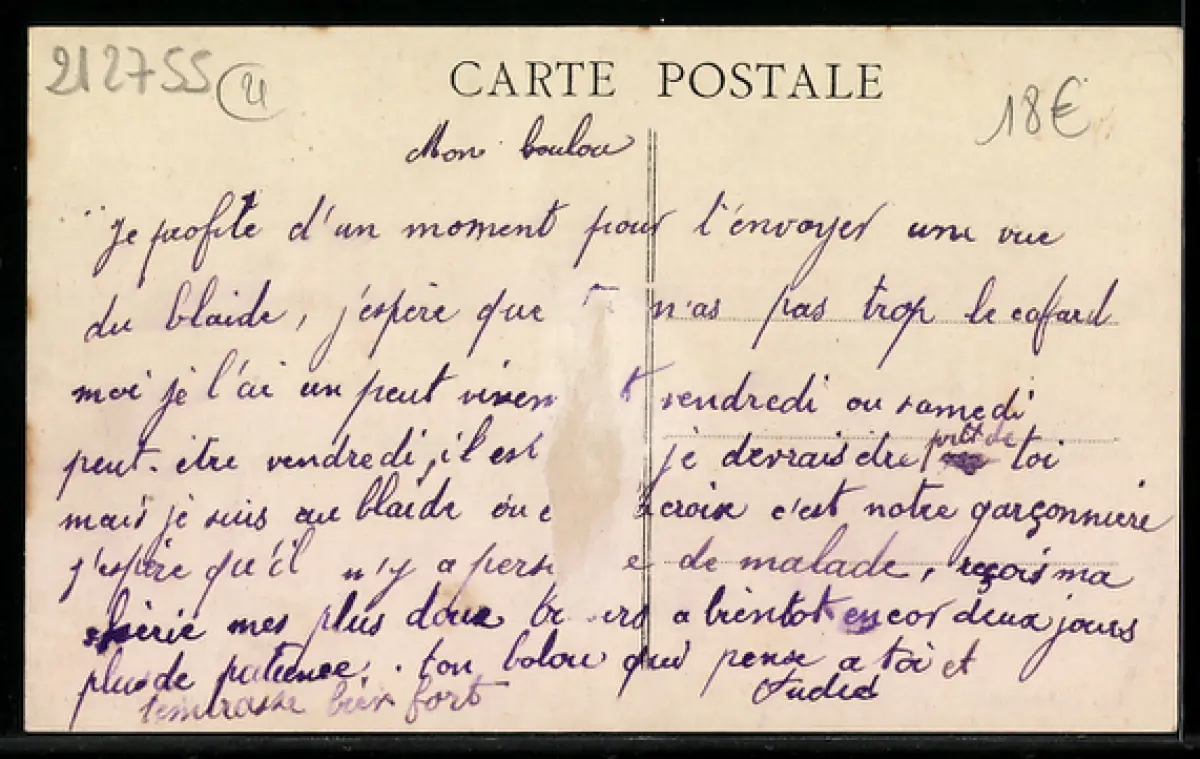 212755 21
CARTE POSTALE
18€
Mon boulou
je profite d'un moment pour t'énvoyer une vue
du blaide, j'espère que n'as pas trop le cafard
moi je l'ai un peut vivem t vendredi ou samedi
peut-être vendredi, il est je devrais etre prèt de toi
mais je suis au blaide ou croix c'est notre garçonniere
j'espère qu'il n'y a pers e de malade, reçois ma
chérie mes plus doux ers a bientot encor deux jours
plus de patience. ton bolou qui pense a toi et
t'embrasse bien fort